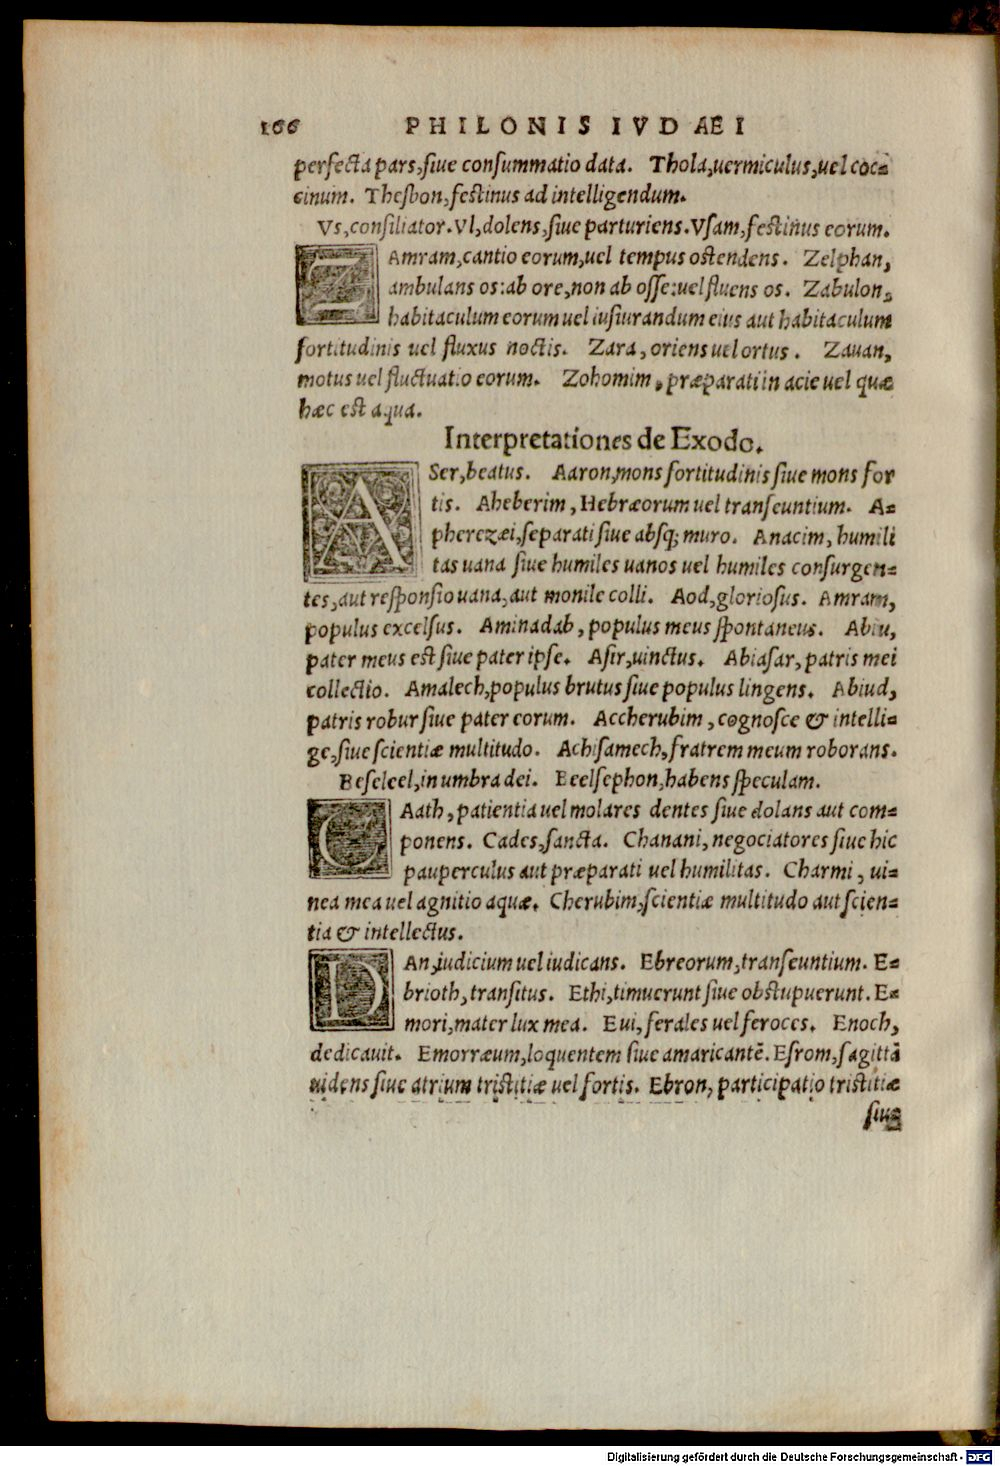 166 PHILONIS IVDAEI
perfecta pars, siue consummatio data. Thola, uermiculus, uel coc=
cinum. Thesbon, festinus ad intelligendum.
Vs, consiliator. Vl, dolens, siue parturiens. Vsam, festinus eorum.
ZAmram, cantio eorum, uel tempus ostendens. Zelphan,
ambulans os: ab ore, non ab osse: uel fluens os. Zabulon,
habitaculum eorum uel iusiurandum eius aut habitaculum
fortitudinis uel fluxus noctis. Zara, oriens uel ortus. Zauan,
motus uel fluctuatio eorum. Zohomim, præparati in acie uel quæ
hæc est aqua.
Interpretationes de Exodo.
ASer, beatus. Aaron, mons fortitudinis siue mons for
tis. Aheberim, Hebræorum uel transeuntium. A=
pherezæi, separati siue absq; muro. Anacim, humili
tas uana siue humiles uanos uel humiles consurgen=
tes, aut responsio uana, aut monile colli. Aod, gloriosus. Amram,
populus excelsus. Aminadab, populus meus spontaneus. Abiu,
pater meus est siue pater ipse. Asir, uinctus. Abiasar, patris mei
collectio. Amalech, populus brutus siue populus lingens. Abiud,
patris robur siue pater eorum. Accherubim, cognosce & intelli=
ge, siue scientiæ multitudo. Achisamech, fratrem meum roborans.
Beseleel, in umbra dei. Beelsephon, habens speculam.
CAath, patientia uel molares dentes siue dolans aut com=
ponens. Cades, sancta. Chanani, negociatores siue hic
pauperculus aut præparati uel humilitas. Charmi, ui=
nea mea uel agnitio aquæ. Cherubim, scientiæ multitudo aut scien=
tia & intellectus.
DAn, iudicium uel iudicans. Ebreorum, transeuntium. E=
brioth, transitus. Ethi, timuerunt siue obstupuerunt. E=
mori, mater lux mea. Eui, ferales uel feroces. Enoch,
dedicauit. Emorræum, loquentem siue amaricantē. Esrom, sagittā
uidens siue atrium tristitiæ uel fortis. Ebron, participatio tristitiæ
siue
Digitalisierung gefördert durch die Deutsche Forschungsgemeinschaft - DFG